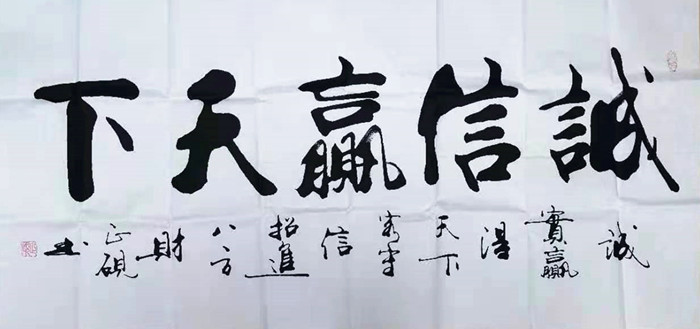 誠信贏天下
誠實贏得天下客守信招進八方財
正硯书